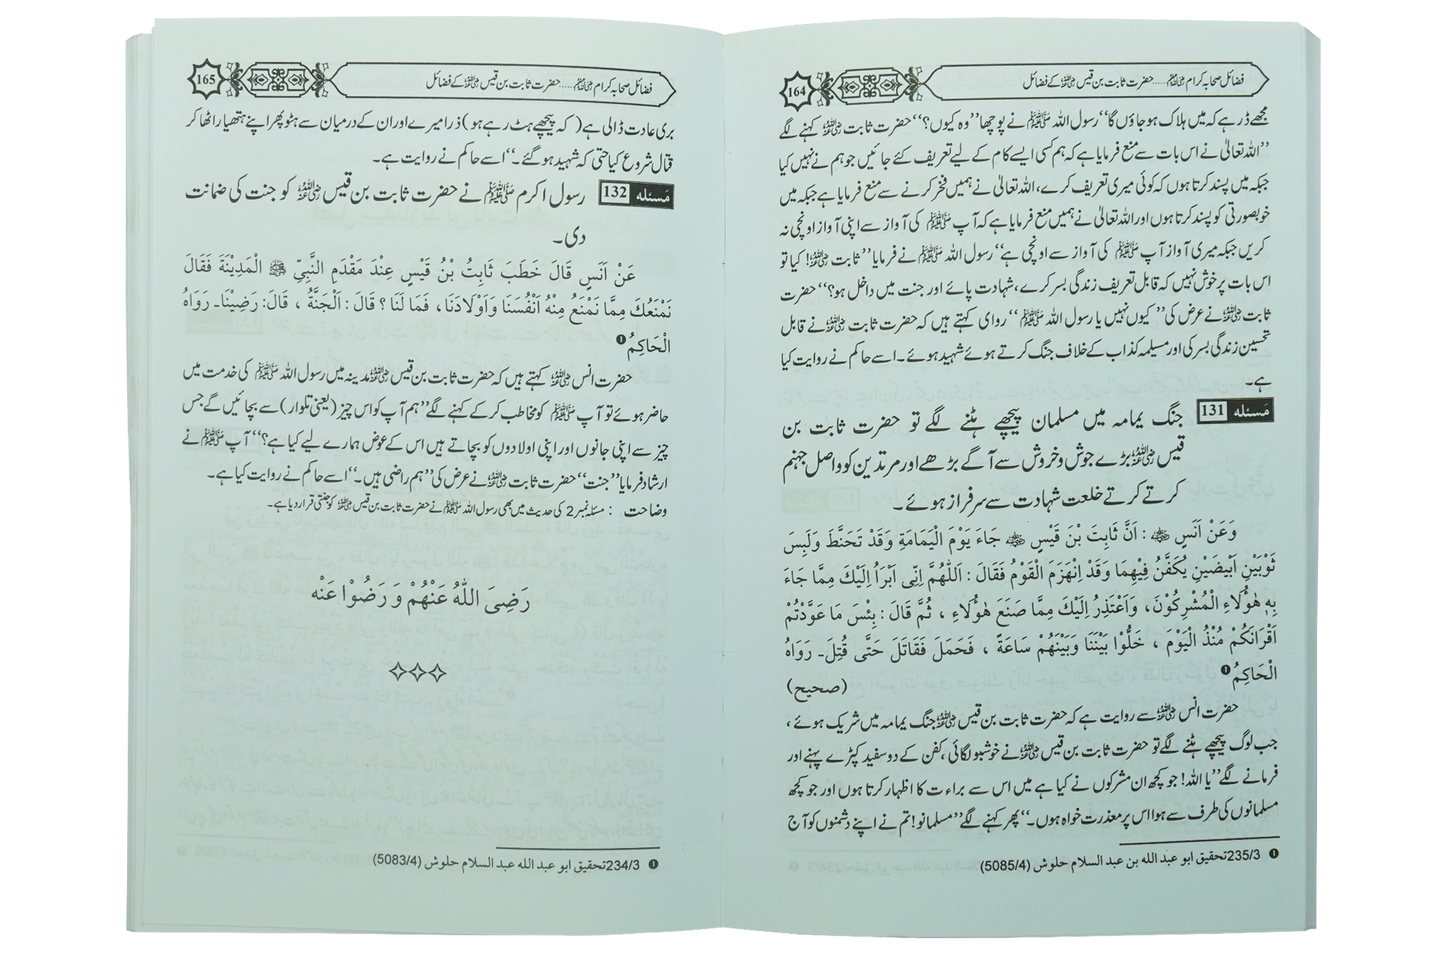 فضائل صحابہ کرام ﷢ ..... حضرت ثابت بن قیس ﷜ کے فضائل
164
مجھے ڈر ہے کہ میں ہلاک ہو جاؤں گا‘‘ رسول اللہ ﷺ نے پوچھا’’وہ کیوں؟‘‘ حضرت ثابت ﷜ کہنے لگے
’’اللہ تعالیٰ نے اس بات سے منع فرمایا ہے کہ ہم کسی ایسے کام کے لیے تعریف کئے جائیں جو ہم نے نہیں کیا
جبکہ میں پسند کرتا ہوں کہ کوئی میری تعریف کرے، اللہ تعالیٰ نے ہمیں فخر کرنے سے منع فرمایا ہے جبکہ میں
خوبصورتی کو پسند کرتا ہوں اور اللہ تعالیٰ نے ہمیں منع فرمایا ہے کہ آپ ﷺ کی آواز سے اپنی آواز اونچی نہ
کریں جبکہ میری آواز آپ ﷺ کی آواز سے اونچی ہے‘‘ رسول اللہ ﷺ نے فرمایا’’ثابت ﷜! کیا تو
اس بات پر خوش نہیں کہ قابل تعریف زندگی بسر کرے، شہادت پائے اور جنت میں داخل ہو؟‘‘ حضرت
ثابت ﷜ نے عرض کی’’ کیوں نہیں یا رسول اللہ ﷺ‘‘ راوی کہتے ہیں کہ حضرت ثابت ﷜ نے قابل
تحسین زندگی بسر کی اور مسیلمہ کذاب کے خلاف جنگ کرتے ہوئے شہید ہوئے۔ اسے حاکم نے روایت کیا
ہے۔
مَسئلہ 131 جنگ یمامہ میں مسلمان پیچھے ہٹنے لگے تو حضرت ثابت بن
قیس ﷜ بڑے جوش و خروش سے آگے بڑھے اور مرتدین کو واصل جہنم
کرتے کرتے خلعت شہادت سے سرفراز ہوئے۔
وَعَنْ اَنَسٍ ﷜ : اَنَّ ثَابِتَ بْنَ قَيْسٍ ﷜ جَاءَ يَوْمَ الْيَمَامَةِ وَقَدْ تَحَنَّطَ وَلَبِسَ
ثَوْبَيْنِ اَبْيَضَيْنِ يُكَفَّنُ فِيْهِمَا وَقَدْ اِنْهَزَمَ الْقَوْمُ فَقَالَ : اَللّٰهُمَّ اِنِّى اَبْرَاُ اِلَيْكَ مِمَّا جَاءَ
بِهٖ هٰؤُلَاءِ الْمُشْرِكُوْنَ ، وَاَعْتَذِرُ اِلَيْكَ مِمَّا صَنَعَ هٰؤُلَاءِ ، ثُمَّ قَالَ : بِئْسَ مَا عَوَّدْتُمْ
اَقْرَانَكُمْ مُنْذُ الْيَوْمَ ، خَلُّوْا بَيْنَنَا وَبَيْنَهُمْ سَاعَةً ، فَحَمَلَ فَقَاتَلَ حَتّٰى قُتِلَ۔ رَوَاهُ
الْحَاكِمُ❶ (صحیح)
حضرت انس ﷜ سے روایت ہے کہ حضرت ثابت بن قیس ﷜ جنگ یمامہ میں شریک ہوئے ،
جب لوگ پیچھے ہٹنے لگے تو حضرت ثابت بن قیس ﷜ نے خوشبو لگائی ،کفن کے دو سفید کپڑے پہنے اور
فرمانے لگے’’یا اللہ! جو کچھ ان مشرکوں نے کیا ہے میں اس سے براءت کا اظہار کرتا ہوں اور جو کچھ
مسلمانوں کی طرف سے ہوا اس پر معذرت خواہ ہوں۔‘‘ پھر کہنے لگے’’مسلمانو! تم نے اپنے دشمنوں کو آج
❶ 235/3تحقیق ابو عبد الله بن عبد السلام حلوش (5085/4)
فضائل صحابہ کرام ﷢ ..... حضرت ثابت بن قیس ﷜ کے فضائل
165
بری عادت ڈالی ہے (کہ پیچھے ہٹ رہے ہو) ذرا میرے اور ان کے درمیان سے ہٹو پھر اپنے ہتھیار اٹھا کر
قتال شروع کیا حتی کہ شہید ہو گئے۔‘‘ اسے حاکم نے روایت ہے۔
مَسئلہ 132 رسول اکرم ﷺ نے حضرت ثابت بن قیس ﷜ کو جنت کی ضمانت
دی۔
عَنْ اَنَسٍ قَالَ خَطَبَ ثَابِتُ بْنُ قَيْسٍ عِنْدَ مَقْدَمِ النَّبِىِّ ﷺ الْمَدِيْنَةَ فَقَالَ
نَمْنَعُكَ مِمَّا نَمْنَعُ مِنْهُ اَنْفُسَنَا وَاَوْلَادَنَا، فَمَا لَنَا ؟ قَالَ : اَلْجَنَّةُ ، قَالَ: رَضِيْنَا۔ رَوَاهُ
الْحَاكِمُ❶
حضرت انس ﷜ کہتے ہیں کہ حضرت ثابت بن قیس ﷜ مدینہ میں رسول اللہ ﷺ کی خدمت میں
حاضر ہوئے تو آپ ﷺ کو مخاطب کر کے کہنے لگے’’ہم آپ کو اس چیز (یعنی تلوار) سے بچائیں گے جس
چیز سے اپنی جانوں اور اپنی اولادوں کو بچاتے ہیں اس کے عوض ہمارے لیے کیا ہے؟‘‘ آپ ﷺ نے
ارشاد فرمایا’’جنت‘‘ حضرت ثابت ﷜ نے عرض کی’’ہم راضی ہیں۔‘‘ اسے حاکم نے روایت کیا ہے۔
وضاحت : مسئلہ نمبر 2 کی حدیث میں بھی رسول اللہ ﷺ نے حضرت ثابت بن قیس ﷜ کو جنتی قرار دیا ہے۔
رَضِىَ اللّٰهُ عَنْهُمْ وَ رَضُوْا عَنْه
❶ 234/3تحقیق ابو عبد الله عبد السلام حلوش (5083/4)